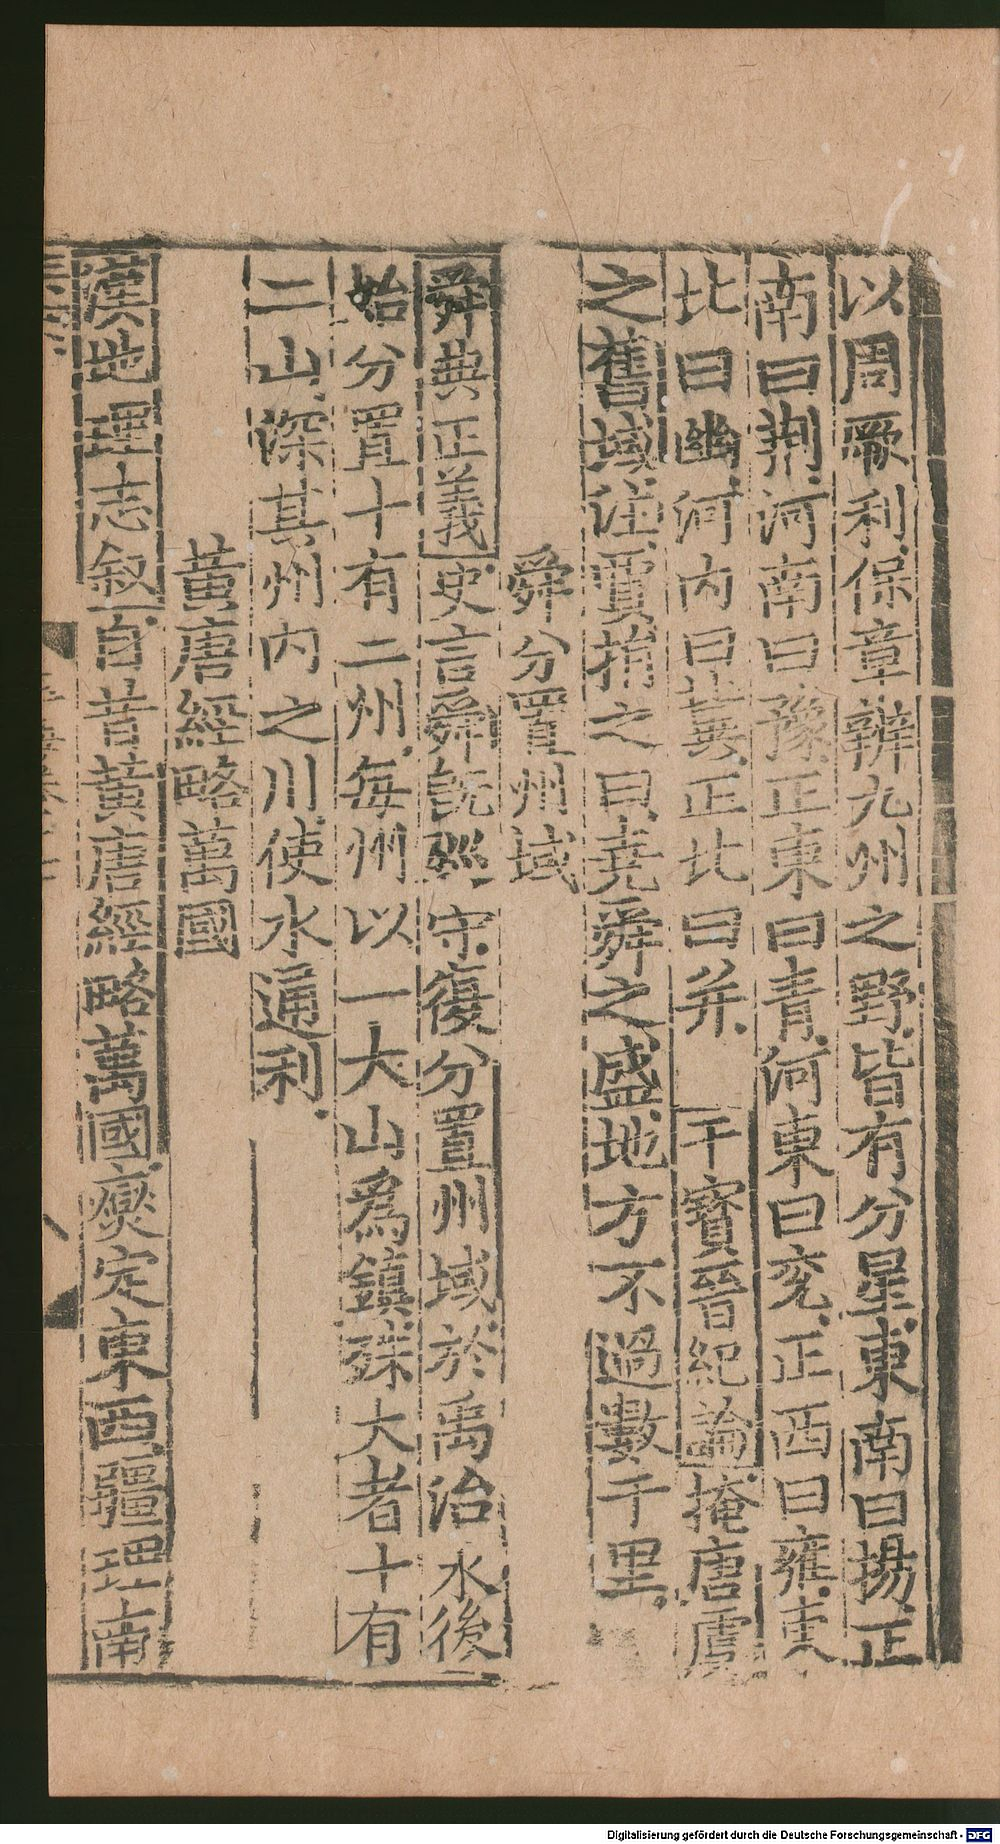 以周厥利保章辨九州之野皆有分星東南曰揚正
南曰荆河南曰豫正東曰青河東曰兖正西曰雍東
北曰幽河内曰冀正北曰并 干寶晉紀論掩唐虞
之舊域注賈捐之曰堯舜之盛地方不過數千里
舜分置州域
舜典正義史言舜既巡守復分置州域於禹治水後
始分置十有二州每州以一大山爲鎮殊大者十有
二山深其州内之川使水通利
黄唐經略萬國
漢地理志叙自昔黄唐經略萬國燮定東西疆理南
Digitalisierung gefördert durch die Deutsche Forschungsgemeinschaft - DFG